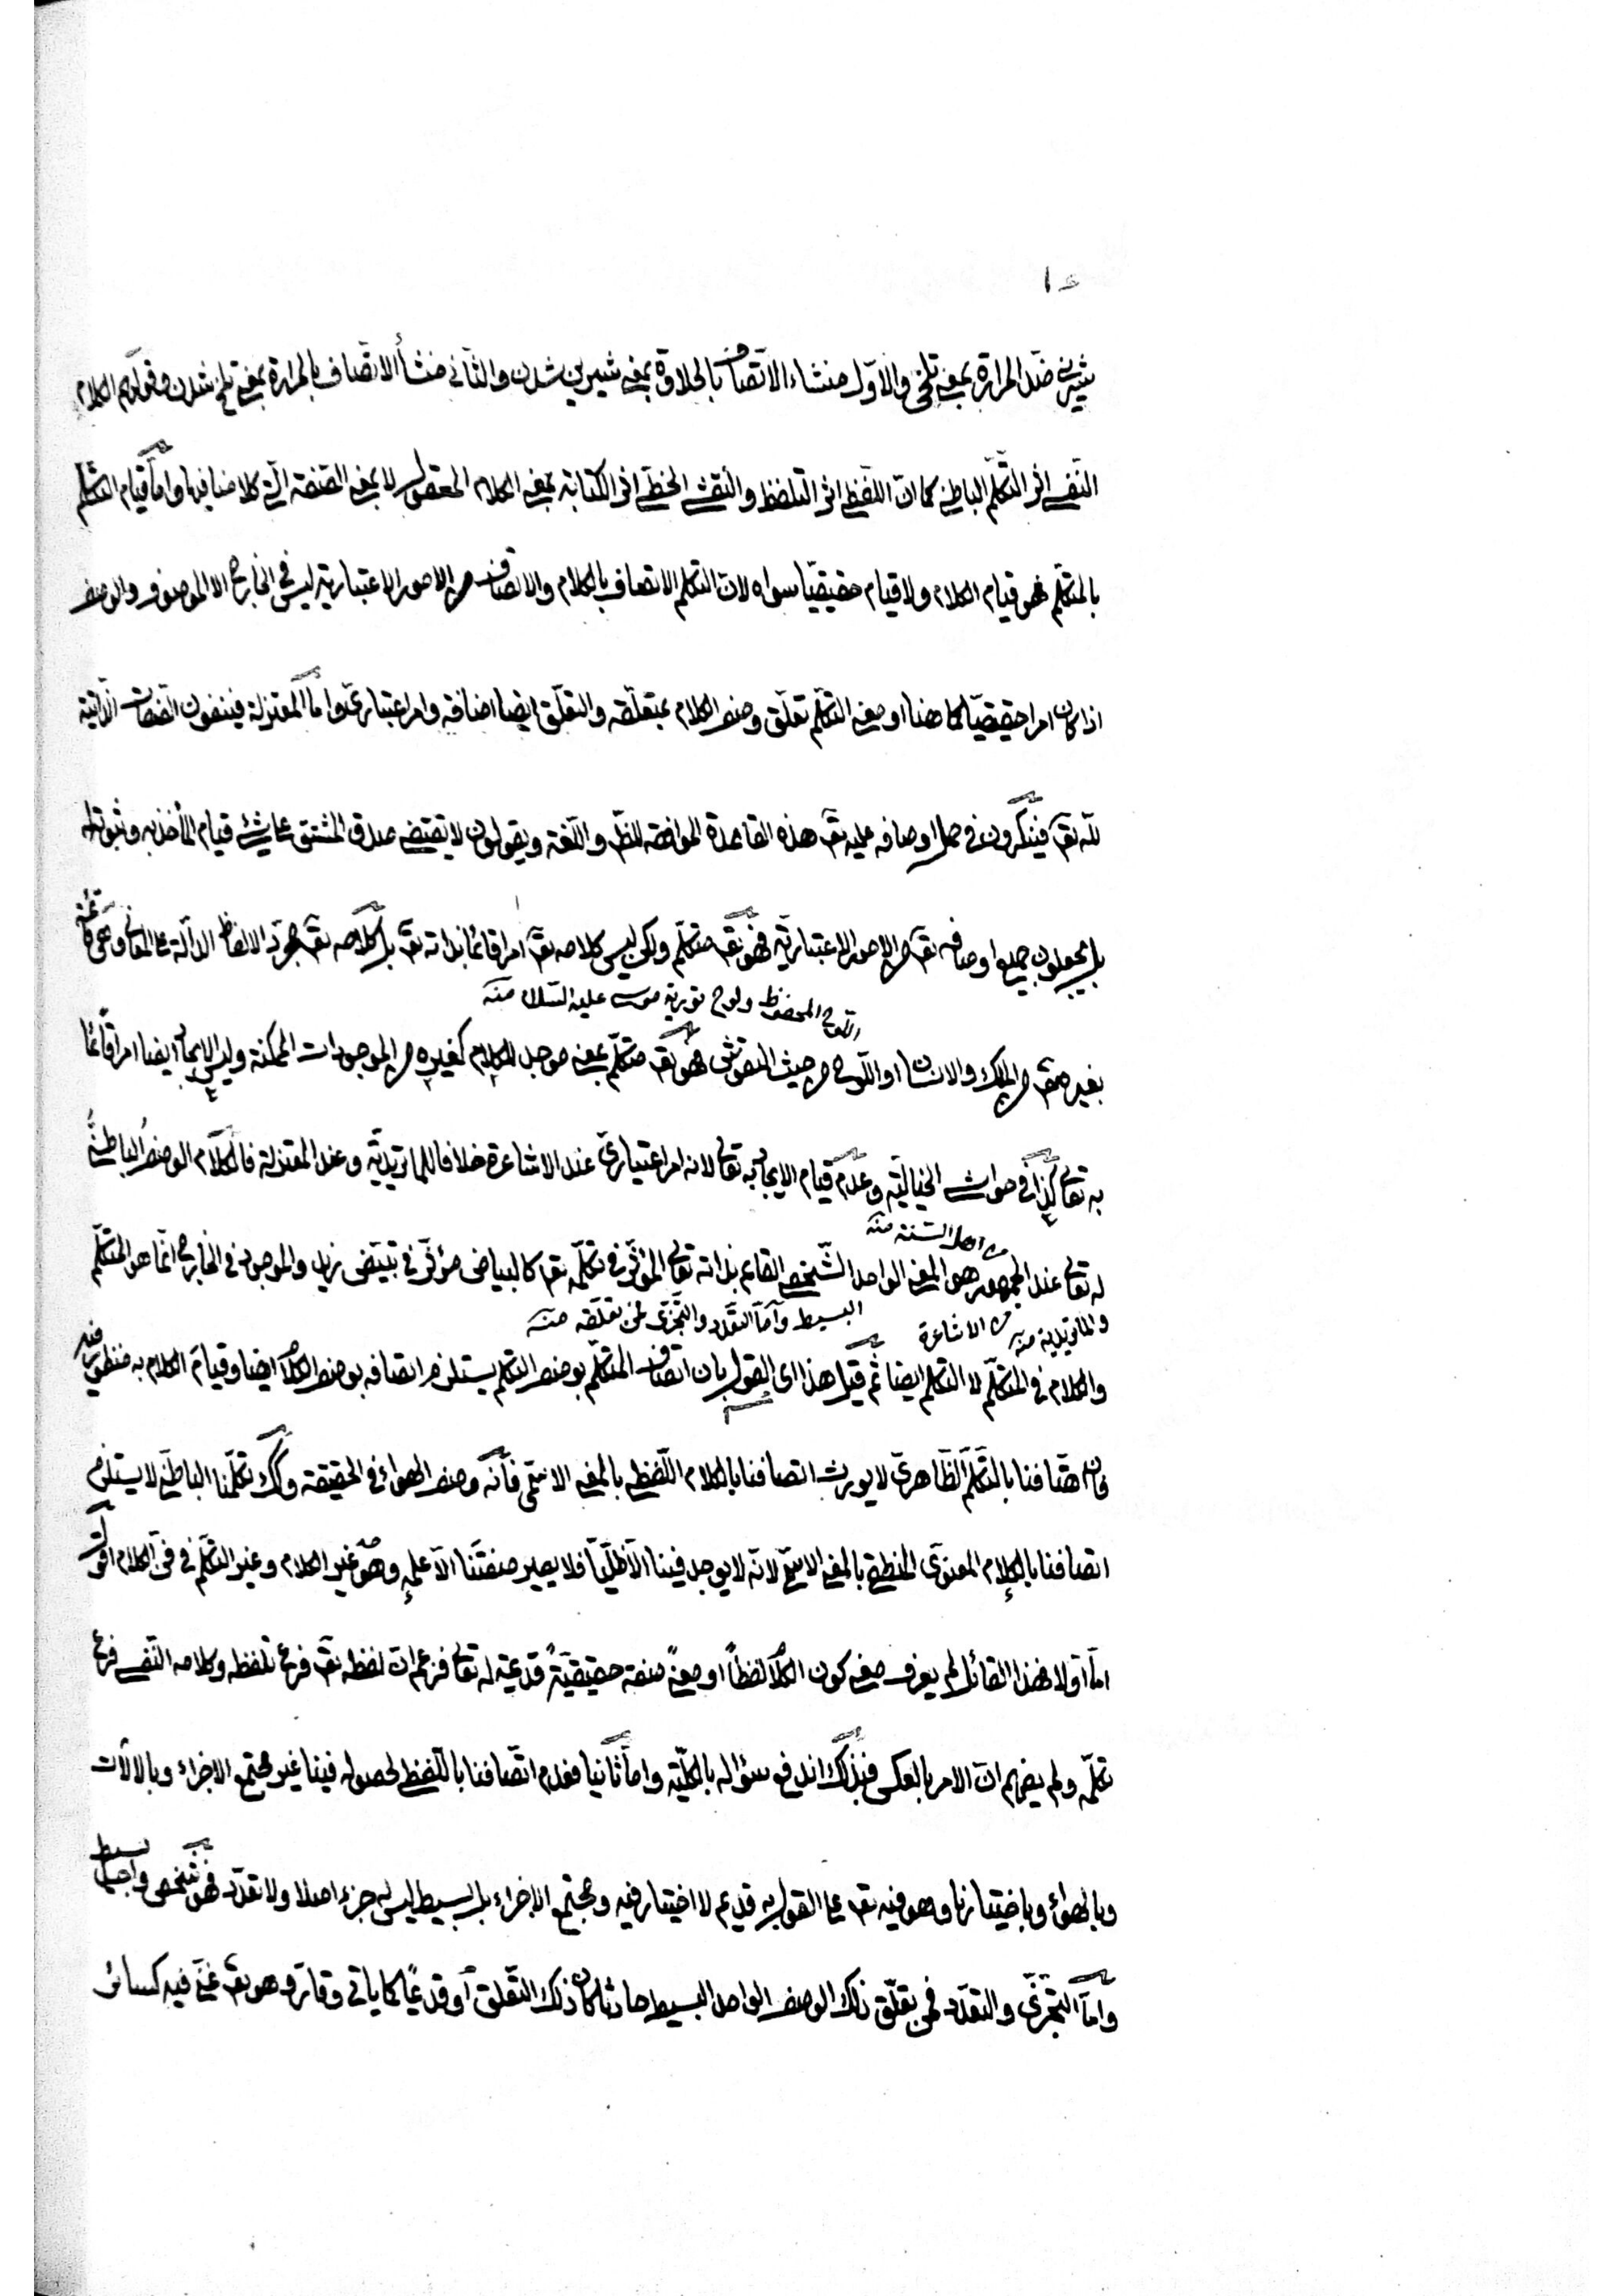 شيرنى ضد المرارة بمعنى تلخى والاول منشاء الاتصاف بالحلاوة بمعنى شيرين شدن والثانى منشأ الاتصاف بالمرارة بمعنى تلخ شدن وقولهم الكلام
النفسى اثر التكلم الباطنى كما ان اللفظى اثر التلفظ والنقشى الخطى اثر الكتابة بمعنى الكلام المعقول لا بمعنى الصفة التى كلامنا فيها واما قيام التكلم
بالمتكلم فهو قيام الكلام ولا قيام حقيقيا سواه لان التكلم الاتصاف بالكلام والاتصاف من الامور الاعتبارية ليس فى الخارج الا الموصوف والوصف
اذا كان امرا حقيقيا كما هنا او معنى التكلم تعلق وصف الكلام بمتعلقه والتعلق ايضا اضافة وامر اعتبارى واما المعتزلة فينفون الصفات الذاتية
لله تعـ فينكرون فى حمل اوصافه عليه تعـ هذه القاعدة الموافقة للنظر واللغة ويقولون لا يقتضى صدق المشتق على شئ قيام المأخذ به وثبوته له
بل يجعلون جميع اوصافه تعـ من الامور الاعتبارية فهو تعـ متكلم ولكن ليس كلامه تعـ امرا قائما بذاته تعـ بل كلامه تعـ مجرد الالفاظ الدالة على المعانى وهى قائمة
اللوح المحفوظ ولوح تورية موسى عليه السلام منه
بغيره تعـ من الملك والانسان او اللوح من حيث النقوش فهو تعـ متكلم بمعنى موجد للكلام كغيره من الموجودات الممكنة وليس الايجاد ايضا امرا قائما
به تعالى كذا فى حواشى الخيالية وعدم قيام الايجاد به تعالى لانه امر اعتبارى عند الاشاعرة خلافا للماتريدية وعند المعتزلة فالكلام الوصف الباطنى
من اهل السنة منه
له تعالى عند الجمهور هو المعنى الواحد الشخصى القائم بذاته تعالى المؤثر فى تكلمه تعـ كالبياض مؤثر فى تبيض زيد والموجود فى الخارج انما هو المتكلم
والماتريدية منه من الاشاعرة البسيط واما التعدد والتجزى فمن تعلقه منه
والكلام فى المتكلم لا التكلم ايضا ثم قيل هذا اى القول بان اتصاف المتكلم بوصف التكلم يستلزم اتصافه بوصف الكلام ايضا وقيام الكلام به منظور فيه
فان اتصافنا بالتكلم الظاهرى لا يورث اتصافنا بالكلام اللفظى بالمعنى الاعم فانه وصف الهواء فى الحقيقة وكذلك تكلمنا الباطنى لا يستلزم
اتصافنا بالكلام المعنوى بالمعنى لانه لا يوجد فينا الا ظليا فلا يصير صفتنا الا علمه وهو غير الكلام وغير التكلم فى فن الكلام اقول
اما اولا فهذا القائل لم يعرف معنى كون الكلام لفظا او معنى صفة حقيقية قديمة له تعالى فزعم ان لفظه تعـ فرع تلفظه وكلامه النفسى فرع
تكلمه ولم يفهم ان الامر بالعكس فبذلك اندفع سؤاله بالكلية واما ثانيا فعدم اتصافنا باللفظ لحصوله فينا غير مجتمع الاجزاء وبالالات
وبالهواء وباختيارنا وهو فيه تعـ على القول به قديم لا اختيار فيه ومجتمع الاجزاء بل بسيط ليس له جزء اصلا ولا تعدد فهو شخصى واحد بسيط
واما التجزى والتعدد فمن تعلق ذلك الوصف الواحد البسيط حادثا كان ذلك التعلق او قديما كما ياتى وهو تعـ غنى فيه كسائر